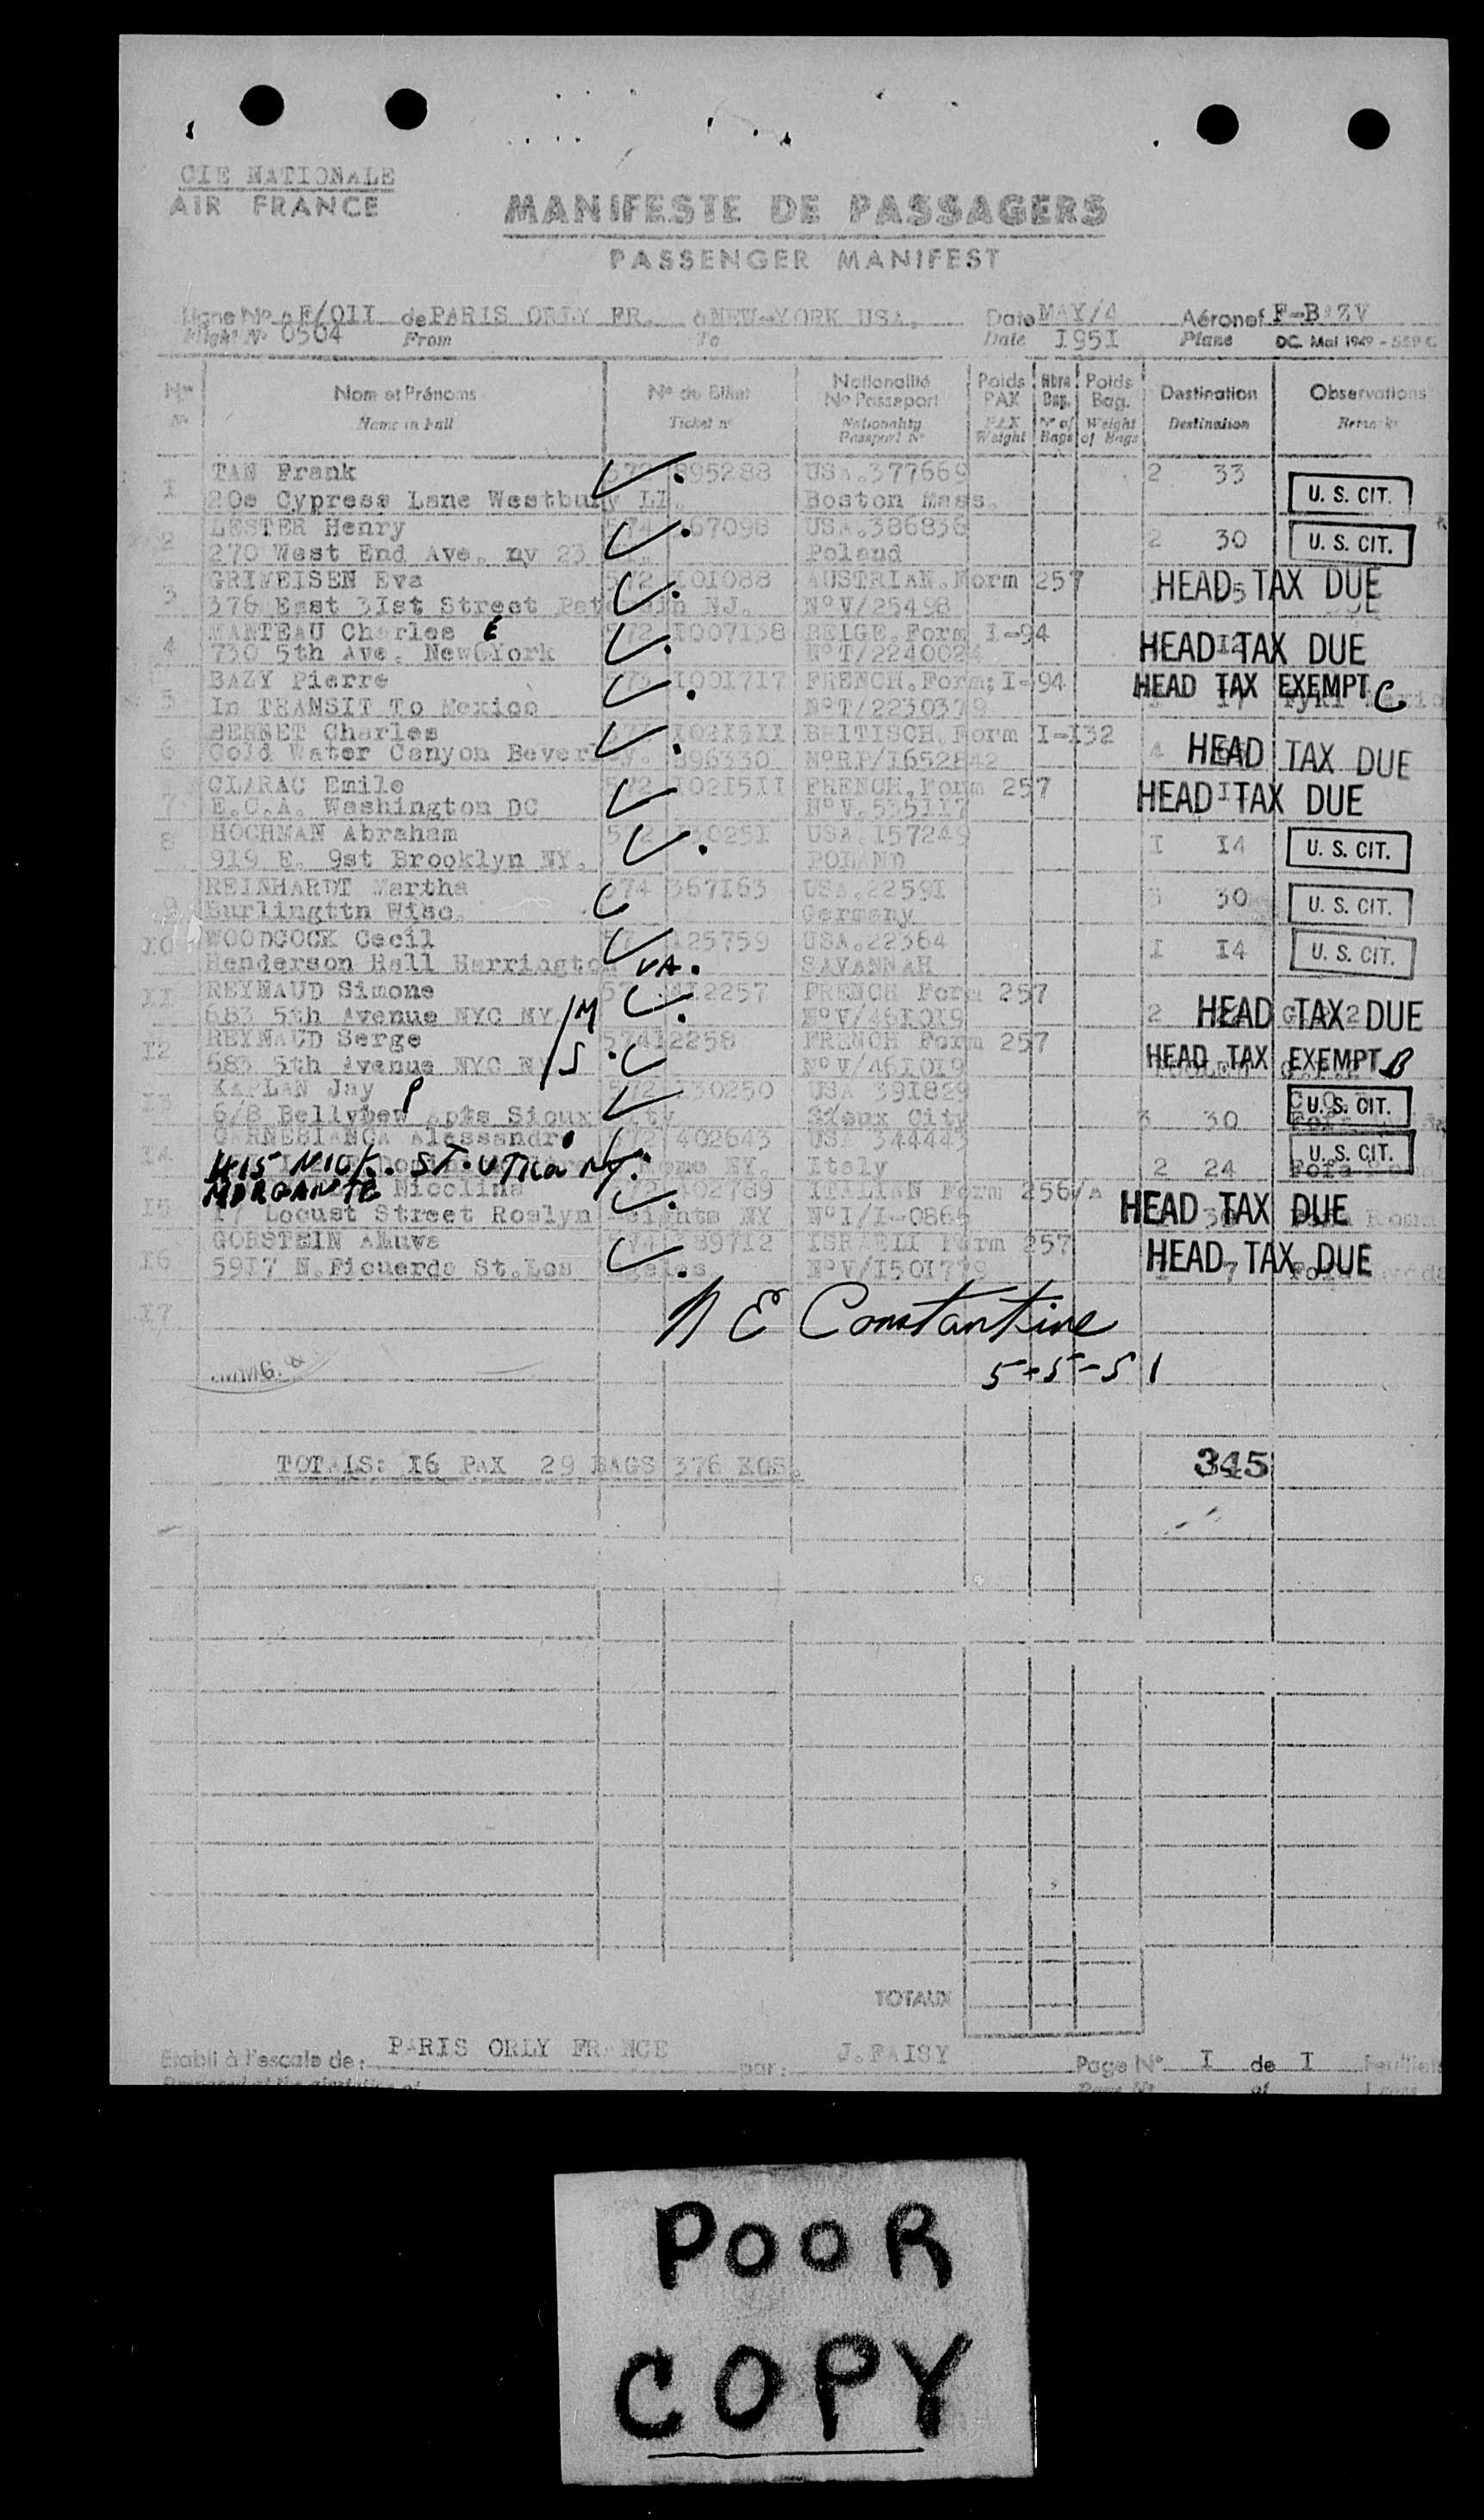 CIE NATIONALE
AIR FRANCE
MANIFESTE DE PASSAGERS
PASSENGER MANIFEST
Ligne No AF/OII de PARIS ORLY FR. à NEW-YORK USA. Date MAY/4 Aéronef F-BAZV
Flight No 0504 From To Date I95I Plane DC. Mai 1949
Nos Nom et Prénoms No du Billet Nationalité No Passeport Poids PAX Nbre Bag. Poids Bag. Destination Observations
No Name in Full Ticket no Nationality Passport No PAX Weight No of Bags Weight of Bags Destination Remarks
I TAN Frank 572 895288 USA.377669 2 33
20e Cypress Lane Westbury LI. Boston Mass. U. S. CIT.
2 LESTER Henry 574 367098 USA.386836 2 30 U. S. CIT.
270 West End Ave. ny 23 Poland
3 GRIMEISEN Eva 572 I0I088 AUSTRIAN.Form 257 HEAD TAX DUE
376 East 3Ist Street NJ. No V/25498
4 MANTEAU Charles E 572 I007I38 BELGE.Form I-94 HEAD TAX DUE
730 5th Ave. NewYork No T/224002
5 BAZY Pierre 573 I00I7I7 FRENCH.Form; I-94 HEAD TAX EXEMPT C
In TRANSIT To Mexico No T/2230379
6 BENNET Charles I02I5II BRITISCH.Form I-I32 4 HEAD TAX DUE
Cold Water Canyon 896330 No RP/I652842
7 CLARAC Emile 572 I02I5II FRENCH.Form 257 HEAD TAX DUE
E.C.A. Washington DC No V.535II7
8 HOCHMAN Abraham 572 I3025I USA.I57249 I I4 U. S. CIT.
919 E. 9st Brooklyn NY. POLAND
9 REINHARDT Martha 574 367I63 USA.2259I 3 30 U. S. CIT.
Burlingttn Wisc. Germany
I0 WOODCOCK Cecil 57 I25759 USA.22364 I I4 U. S. CIT.
Henderson Hall Herrington VA. SAVANNAH
II REYNAUD Simone 57 4I2257 FRENCH Form 257 2 HEAD TAX DUE
683 5th Avenue NYC NY /M No V/46I0I9
I2 REYNAUD Serge 574I2258 FRENCH Form 257 HEAD TAX EXEMPT B
683 5th Avenue NYC NY /S No V/46I0I9
I3 KAPLAN Jay P 572 I30250 USA 39I829 U. S. CIT.
6/8 Bellybew Apts Sioux City Sioux City 3 30
I4 CARNEBIANCA Alessandro 572 402643 USA 344443 U. S. CIT.
1415 NICK. ST. UTICA NY. Rome NY. Italy 2 24
I5 MORGANTE Nicolina 402789 ITALIAN Form 256/A HEAD TAX DUE
I7 Locust Street Roslyn Heights NY No I/I-0865
I6 GORSTEIN Aluva 574 I897I2 ISRAELI Form 257 HEAD TAX DUE
59I7 N.Figuerdo St.Los Angeles No V/I50I779
I7
N E Constantine
5-5-51
TOTALS: I6 PAX 29 BAGS 376 KGS. 345
TOTAUX
Etabli à l'escale de: PARIS ORLY FRANCE par: J.FAISY Page No I de I Feuillets
POOR
COPY